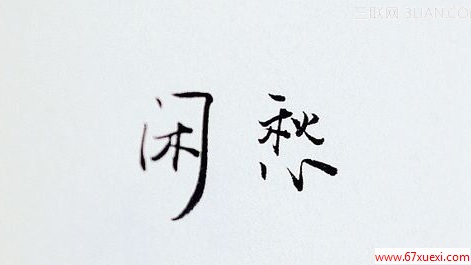 三联网 3LIAN.COM
闲愁
www.67xuexi.com